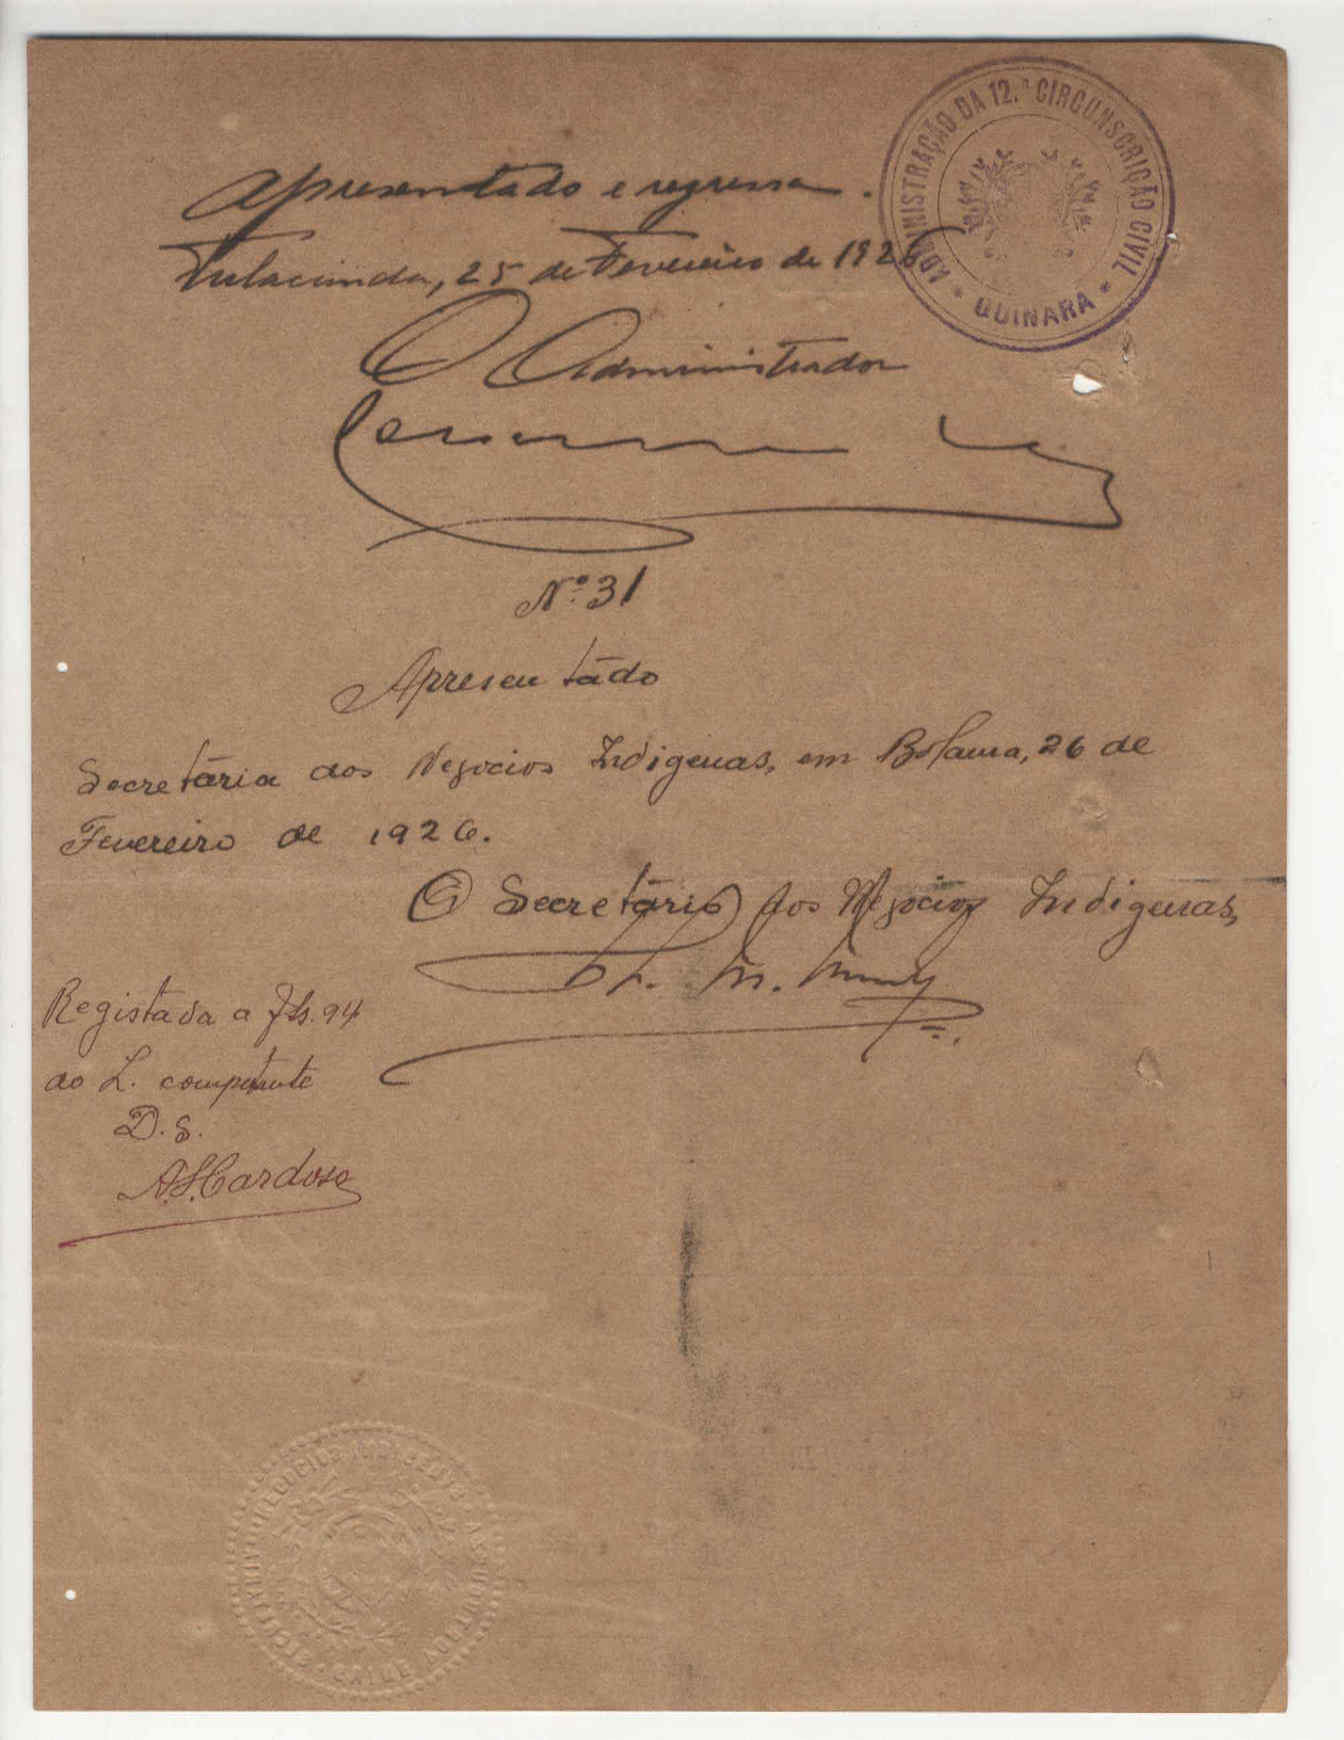 ADMINISTRAÇÃO DA 12.ª CIRCUNSCRIÇÃO CIVIL
* QUINARA *
Apresentado e regressa.
Fulacunda, 25 de Fevereiro de 1926
O Administrador
Nº 31
Apresentado
Secretária dos Negocios Indigenas, em Bolama, 26 de
Fevereiro de 1926.
O Secretário dos Negocios Indigenas,
Registada a fls. 94
do L. competente
D. S.
A. S. Cardoso